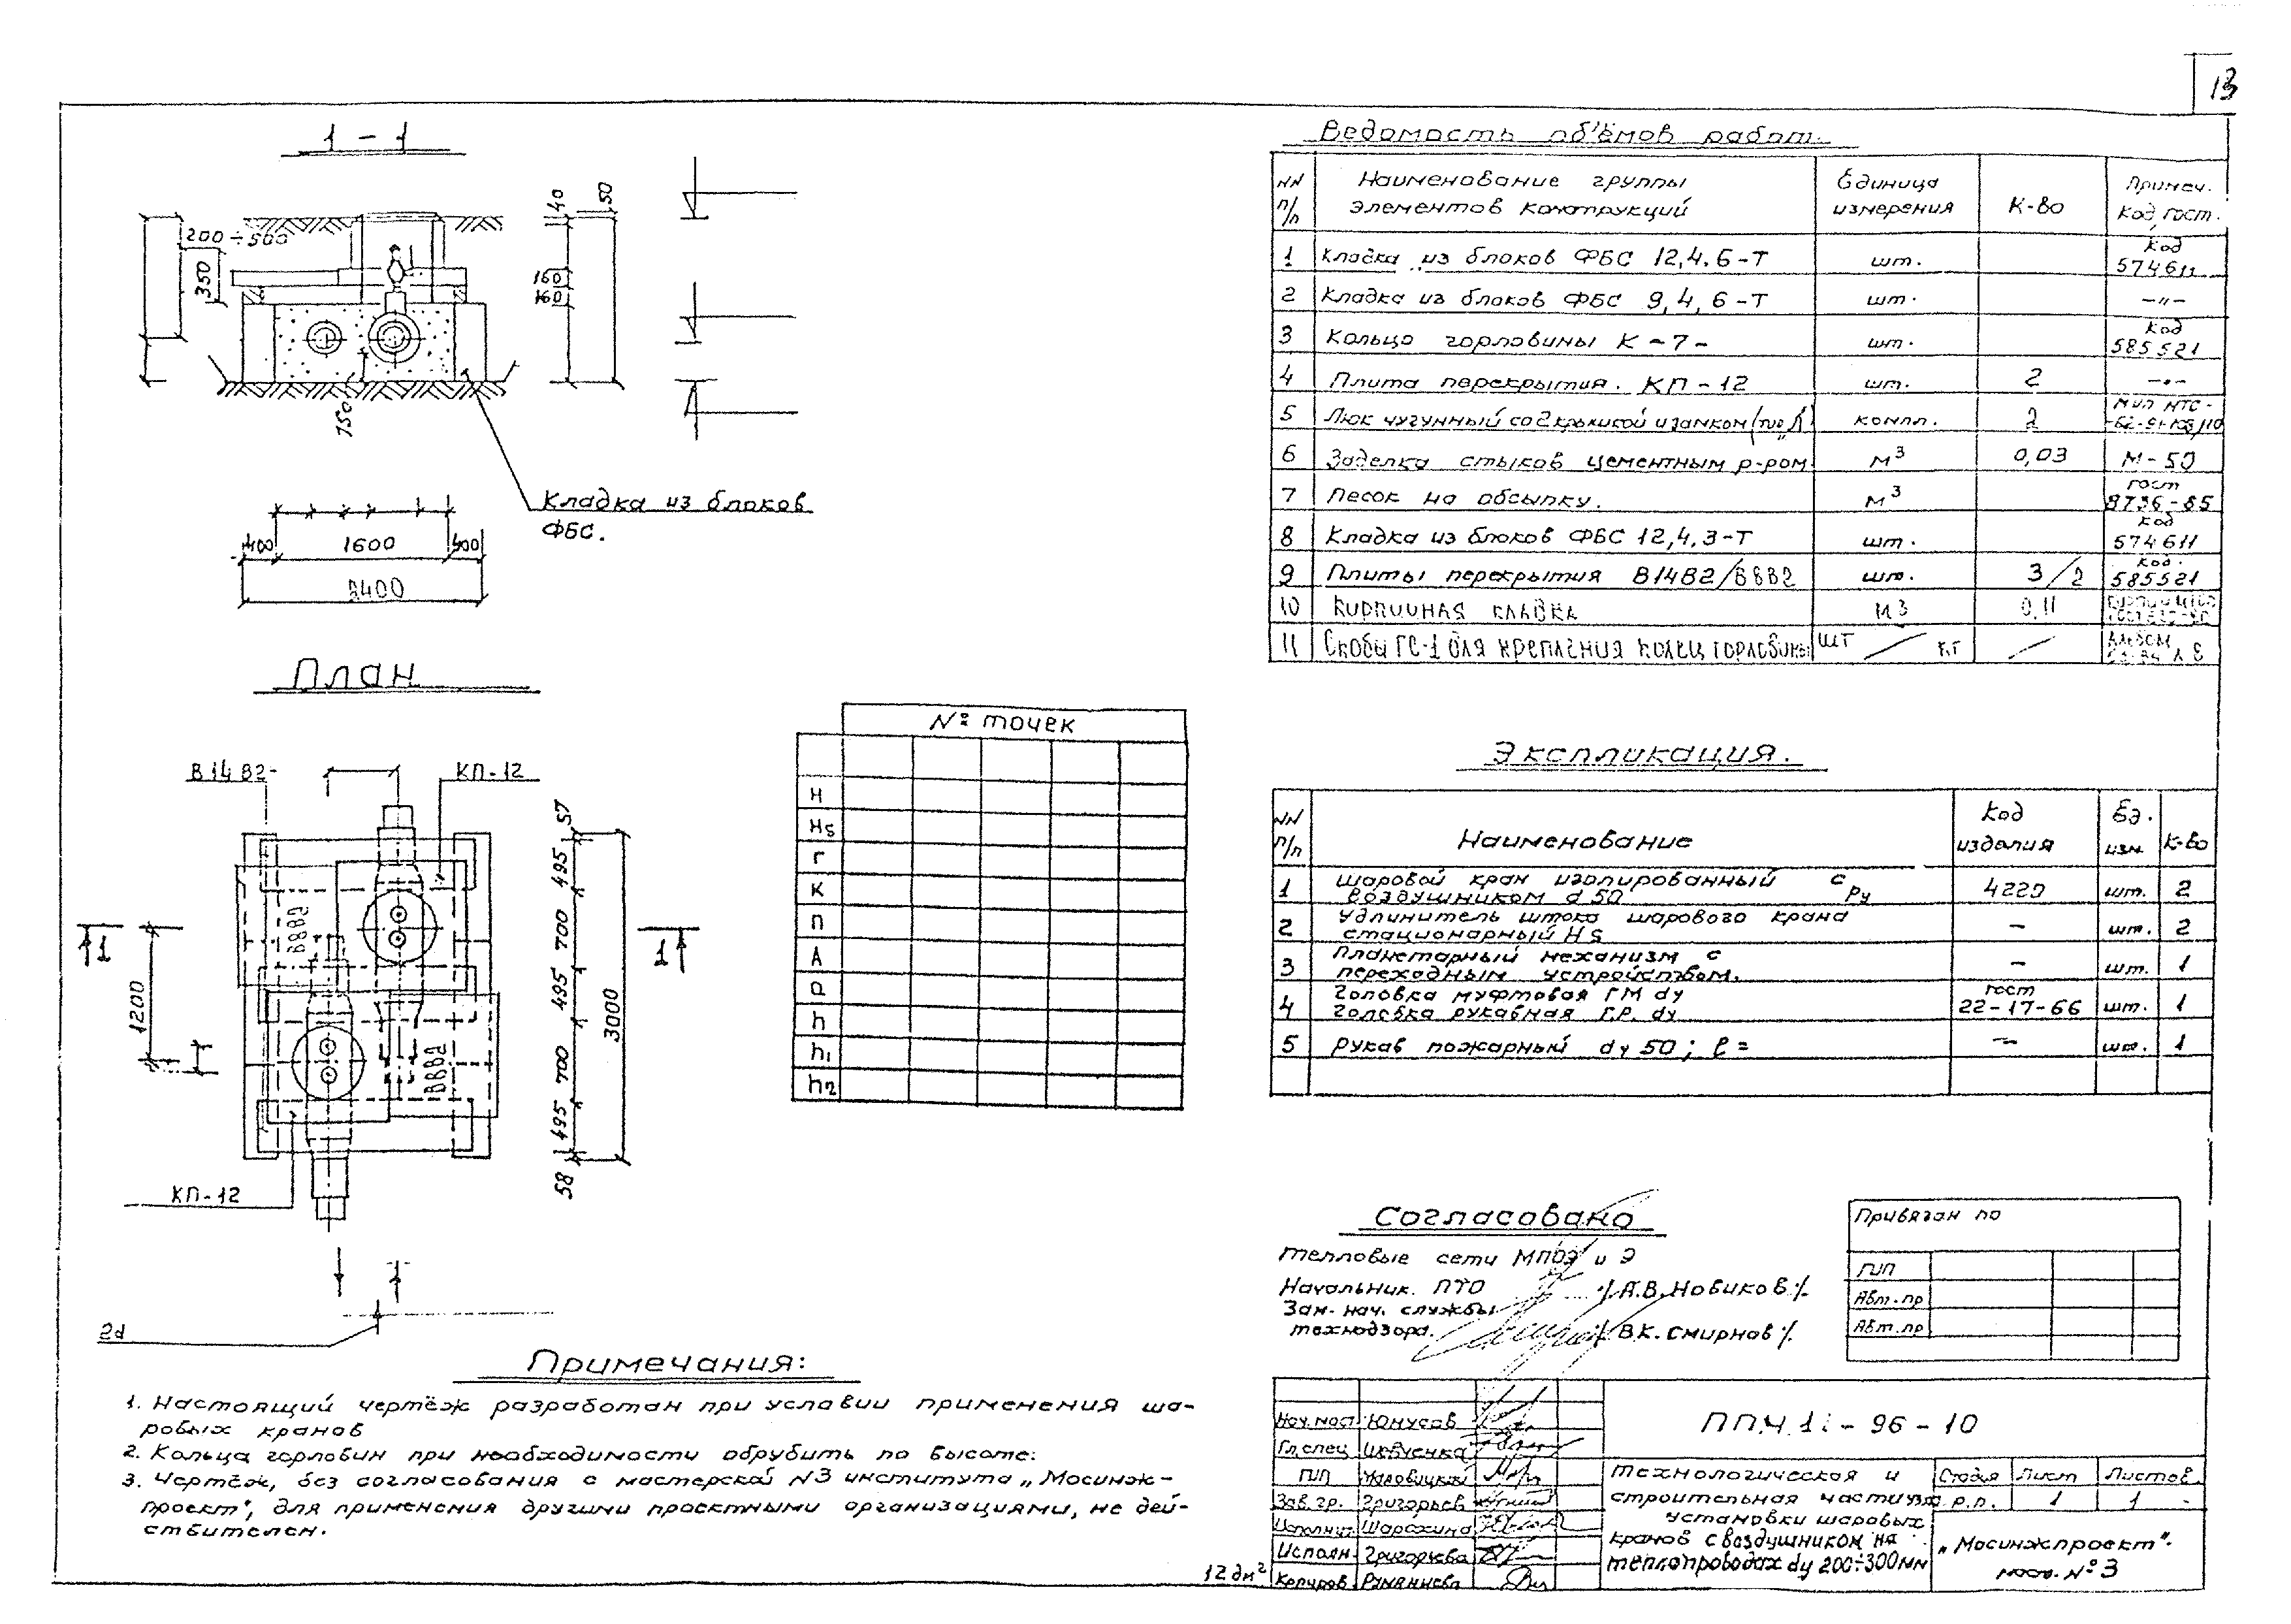 13
1 - 1
200÷500
350
40
50
160
160
150
Кладка из блоков
ФБС.
400 1600 400
2400
План
В14В2
КП-12
57
495
700
495
700
495
58
3000
1200
В8В2
В8В2
1 1
КП-12
2d
№ точек
Н
Hs
Г
К
П
А
h
h1
h2
Ведомость об'ёмов работ.
NN п/п Наименование группы элементов конструкций Единица измерения К-во Примеч. Код гост.
1 Кладка из блоков ФБС 12,4.6-Т шт. Код 574611
2 Кладка из блоков ФБС 9,4,6-Т шт. -"-
3 Кольцо горловины К-7- шт. Код 585521
4 Плита перекрытия. КП-12 шт. 2 -"-
5 Люк чугунный со 2 крышкой и замком (тип Л) компл. 2
6 Заделка стыков цементным р-ром м3 0,03 М-50
7 Песок на обсыпку. м3 гост 8736-85
8 Кладка из блоков ФБС 12,4.3-Т шт. Код 574611
9 Плиты перекрытия В14В2/В8В2 шт. 3/2 Код. 585521
10 Кирпичная кладка м3 0,11
11 Скобы ГС-1 для крепления колец горловины шт / кг / Альбом
Экспликация.
NN п/п Наименование Код изделия Ед. изм. К-во
1 Шаровой кран изолированный с воздушником d 50 Ру 4220 шт. 2
2 Удлинитель штока шарового крана стационарный Hs - шт. 2
3 Планетарный механизм с переходным устройством. - шт. 1
4 Головка муфтовая ГМ dy
Головка рукавная Г.Р. dy гост 22-17-66 шт. 1
5 Рукав пожарный dy 50; ℓ = - шт. 1
Согласовано
Тепловые сети МПОЭ и Э
Начальник. ПТО /А.В.Новиков/
Зам. нач. службы
технадзора. /В.К.Смирнов/
Привязан по
ГИП
Авт.пр
Авт.пр
Примечания:
1. Настоящий чертёж разработан при условии применения ша-
ровых кранов
2. Кольца горловин при необходимости обрубить по высоте.
3. Чертёж, без согласования с мастерской N3 института „Мосинж-
проект", для применения другими проектными организациями, не дей-
ствителен.
12 дм2
Нач.маст Юнусов
Гл.спец Шевченко
ГИП
Зав.гр. Григорьев
Исполнит. Шарохина
Исполн. Григорьева
Копиров Румянцева
ППЧ 11-96-10
Технологическая и
строительная части узла
установки шаровых
кранов с воздушником на
теплопроводах dy 200÷300мм
Стадия Лист Листов
р.п. 1 1
„Мосинжпроект".
маст. №3